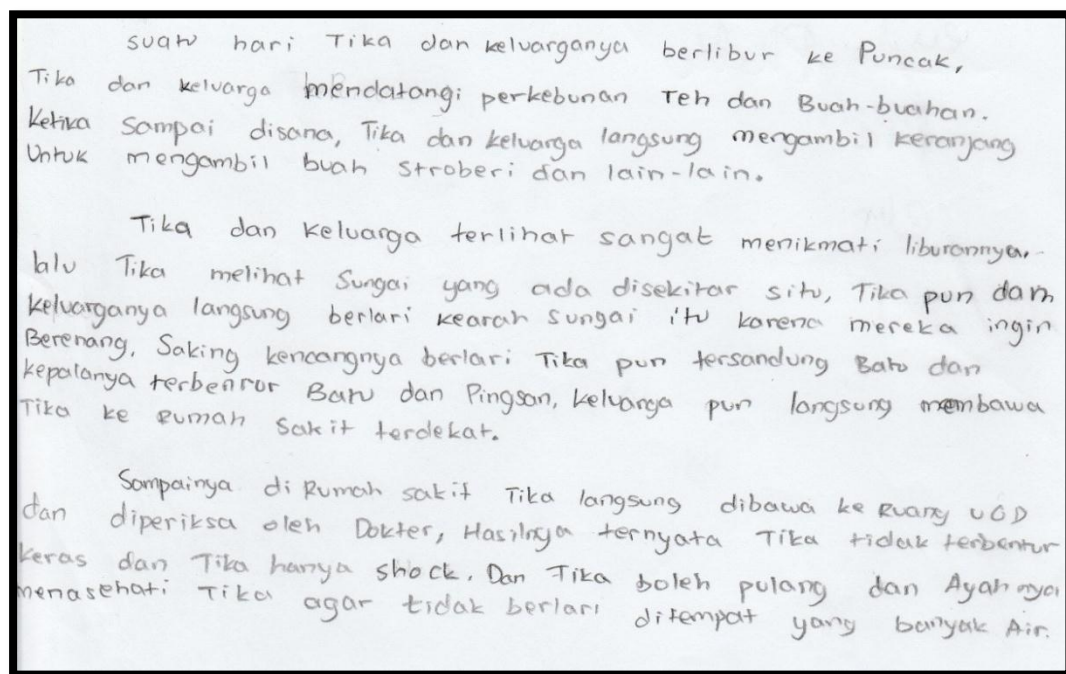 suatu hari Tika dan keluarganya berlibur ke Puncak,
Tika dan keluarga mendatangi perkebunan Teh dan Buah-buahan.
Ketika Sampai disana, Tika dan keluarga langsung mengambil keranjang
Untuk mengambil buah stroberi dan lain-lain.
Tika dan keluarga terlihat sangat menikmati liburannya.
lalu Tika melihat Sungai yang ada disekitar situ, Tika pun dam
keluarganya langsung berlari kearah sungai itu karena mereka ingin
Berenang, Saking kencangnya berlari Tika pun tersandung Batu dan
kepalanya terbentor Batu dan Pingsan, keluarga pun langsung membawa
Tika ke Rumah Sakit terdekat.
Sampainya di Rumah sakit Tika langsung dibawa ke Ruang UGD
dan diperiksa oleh Dokter, Hasilnya ternyata Tika tidak terbentur
keras dan Tika hanya shock. Dan Tika boleh pulang dan Ayahnya
menasehati Tika agar tidak berlari ditempat yang banyak Air.